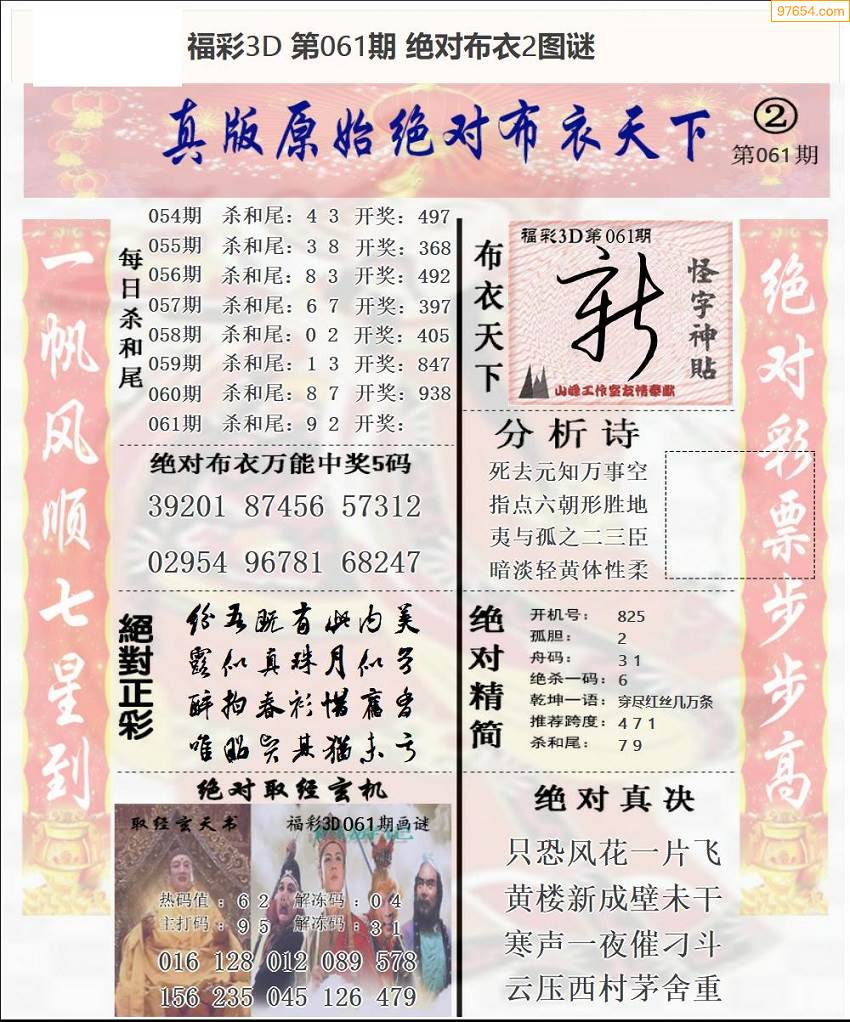 97654.com
福彩3D 第061期 绝对布衣2图谜
真版原始绝对布衣天下
②
第061期
一帆风顺七星到
每日杀和尾
054期 杀和尾：4 3 开奖：497
055期 杀和尾：3 8 开奖：368
056期 杀和尾：8 3 开奖：492
057期 杀和尾：6 7 开奖：397
058期 杀和尾：0 2 开奖：405
059期 杀和尾：1 3 开奖：847
060期 杀和尾：8 7 开奖：938
061期 杀和尾：9 2 开奖：
绝对布衣万能中奖5码
39201 87456 57312
02954 96781 68247
絕對正彩
纷吾既有此内美
露似真珠月似弓
醉拍春衫惜旧香
绝对取经玄机
取经玄天书
福彩3D061期画谜
热码值：6 2 解冻码：0 4
主打码：9 5 解冻码：3 1
016 128 012 089 578
156 235 045 126 479
布衣天下
福彩3D第061期
新
怪字神貼
山峰工作室友情奉献
分析诗
死去元知万事空
指点六朝形胜地
夷与孤之二三臣
暗淡轻黄体性柔
绝对精简
开机号： 825
孤胆： 2
舟码： 3 1
绝杀一码：6
乾坤一语：穿尽红丝几万条
推荐跨度：4 7 1
杀和尾： 7 9
绝对真决
只恐风花一片飞
黄楼新成壁未干
寒声一夜催刁斗
云压西村茅舍重
绝对彩票步步高